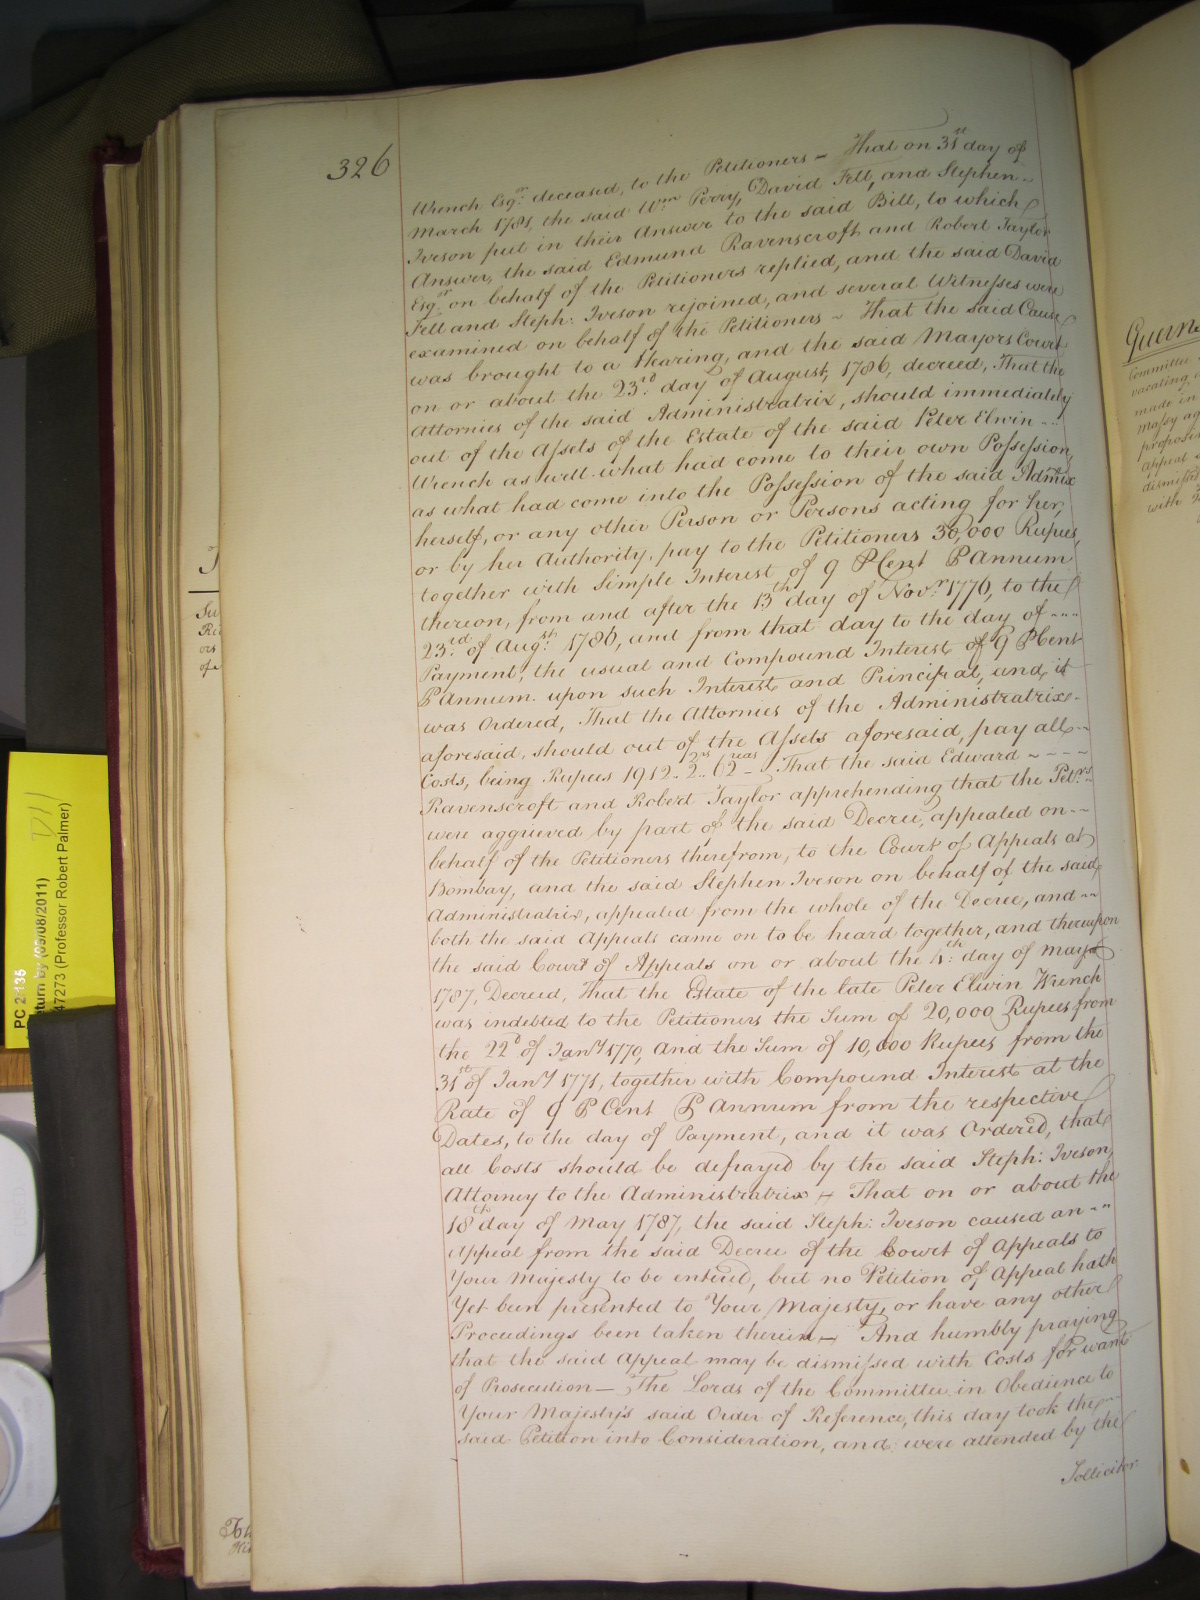 326
Wrench Esqr. deceased, to the Petitioners – That on 31st day of
March 1781, the said Wm Perry, David Fell, and Stephen
Iveson put in their Answer to the said Bill, to which
Answer, the said Edmund Ravenscroft and Robert Taylor
Esqrs on behalf of the Petitioners replied, and the said David
Fell and Steph: Iveson rejoined, and several Witnesses were
examined on behalf of the Petitioners ~ That the said Cause
was brought to a Hearing, and the said Mayors Court
on or about the 23rd. day of August, 1786, decreed, That the
Attornies of the said Administratrix, should immediately
out of the Assets of the Estate of the said Peter Elwin
Wrench as well what had come to their own Possession,
as what had come into the Possession of the said Admix
herself, or any other Person or Persons acting for her,
or by her Authority, pay to the Petitioners 30,000 Rupees,
together with Simple Interest of 9 P Cent P Annum
thereon, from and after the 13th day of Novr. 1776, to the
23rd of Augst. 1786, and from that day to the day of
Payment, the usual and Compound Interest of 9 P Cent
P Annum. upon such Interest and Principal, and it
was Ordered, That the Attornies of the Administratrix
aforesaid, should out of the Assets aforesaid, pay all
Costs, being Rupees 1912. 2. 62 – That the said Edward
Ravenscroft and Robert Taylor apprehending that the Petrs
were aggrieved by part of the said Decree, appealed on
behalf of the Petitioners therefrom, to the Court of Appeals at
Bombay, and the said Stephen Iveson on behalf of the said
Administratrix, appealed from the whole of the Decree, and
both the said Appeals came on to be heard together, and thereupon
the said Court of Appeals on or about the 4th. day of May
1787, Decreed, That the Estate of the late Peter Elwin Wrench
was indebted to the Petitioners the Sum of 20,000 Rupees from
the 22d of Jany 1770, and the Sum of 10,000 Rupees from the
31st of Jany 1771, together with Compound Interest at the
Rate of 9 P Cent P Annum from the respective
Dates, to the day of Payment, and it was Ordered, that
all Costs should be defrayed by the said Steph: Iveson,
Attorney to the Administratrix – That on or about the
18th day of May 1787, the said Steph: Iveson caused an
Appeal from the said Decree of the Court of Appeals to
Your Majesty to be entered, but no Petition of Appeal hath
Yet been presented to Your Majesty, or have any other
Proceedings been taken therein – And humbly praying
that the said Appeal may be dismissed with Costs for want
of Prosecution – The Lords of the Committee in Obedience to
Your Majesty's said Order of Reference, this day took the
said Petition into Consideration, and were attended by the
Sollicitor
Guerns
Committee
vacating
made in
Massy ag
proposin
appeal
dismissed
with
PC 2 135
eturn by (09/08/2011)
47273 (Professor Robert Palmer)